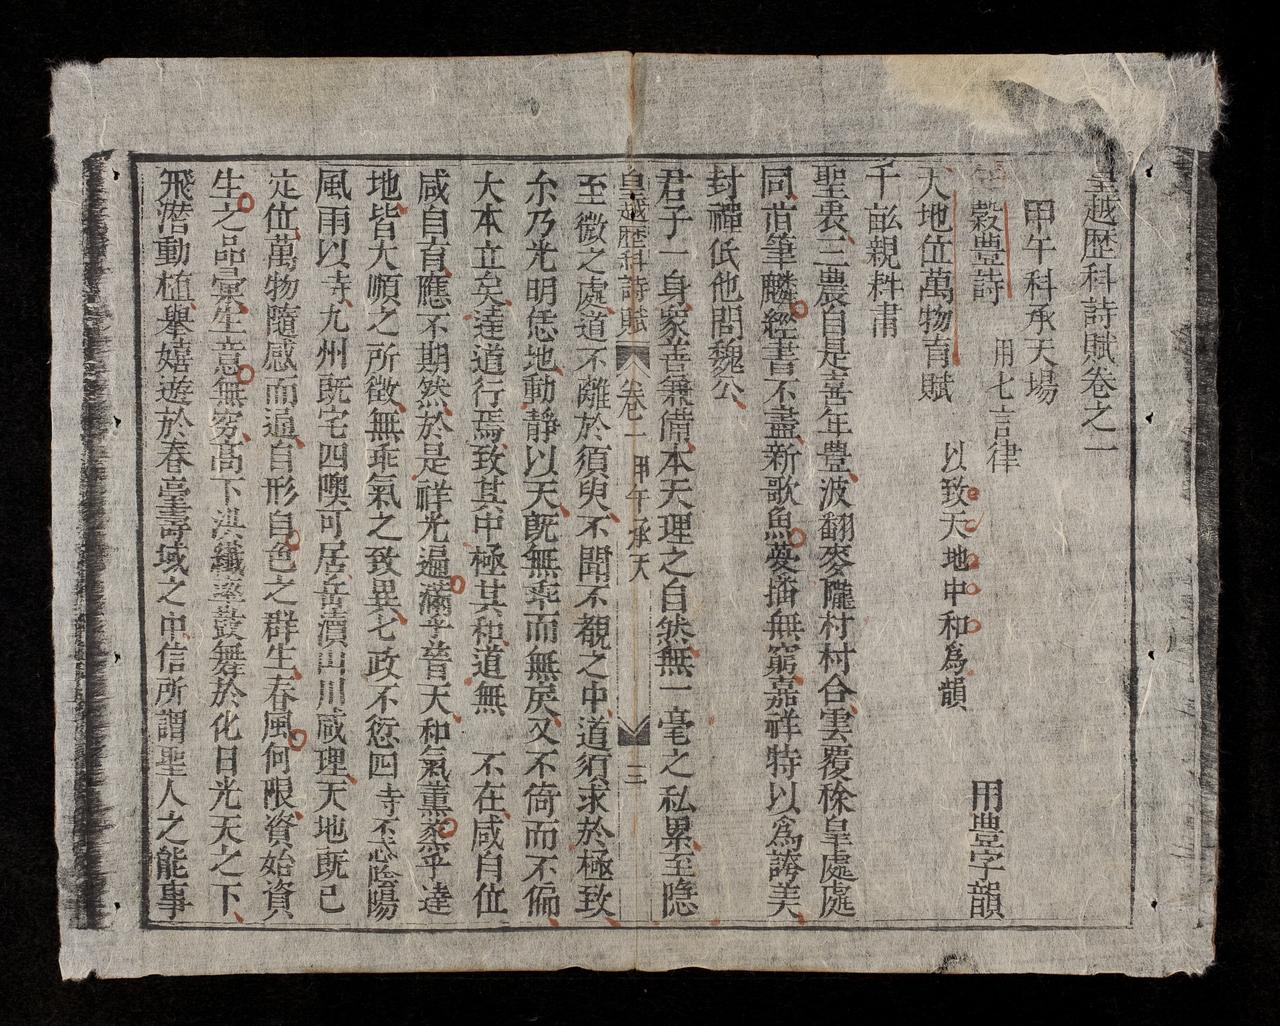 皇越歷科詩賦卷之一
甲午科承天場
穀豐詩 用七言律 用豊字韻
天地位萬物育賦 以致天地中和爲韻
千畝親耕肅
聖衷三農自是喜年豊波翻麥隴村村合雲覆稌皇處處
同前筆麟經書不盡新歌魚夢播無窮嘉祥特以爲誇美
封禪低他問魏公
君子一身衆善兼備本天理之自然無一毫之私累至隐
皇越歷科詩賦 卷一 甲午承天 三
至微之處道不離於須臾不聞不覩之中道須求於極致
尒乃光明恁地動靜以天旣無乖而無戾又不倚而不偏
大本立矣達道行焉致其中極其和道無 不在咸自位
咸自育應不期然於是祥光遍滿乎普天和氣薰烝乎逹
地皆大順之所徵無乖氣之致異七政不愆四寺不忒陰陽
風雨以寺九州旣宅四隩可居岳瀆山川咸理天地旣已
定位萬物隨感而通自形自色之群生春風何限資始資
生之品彙生意無窮高下洪纖逕鼓舞於化日光天之下
飛潜動植舉嬉遊於春臺壽域之中信所謂聖人之能事